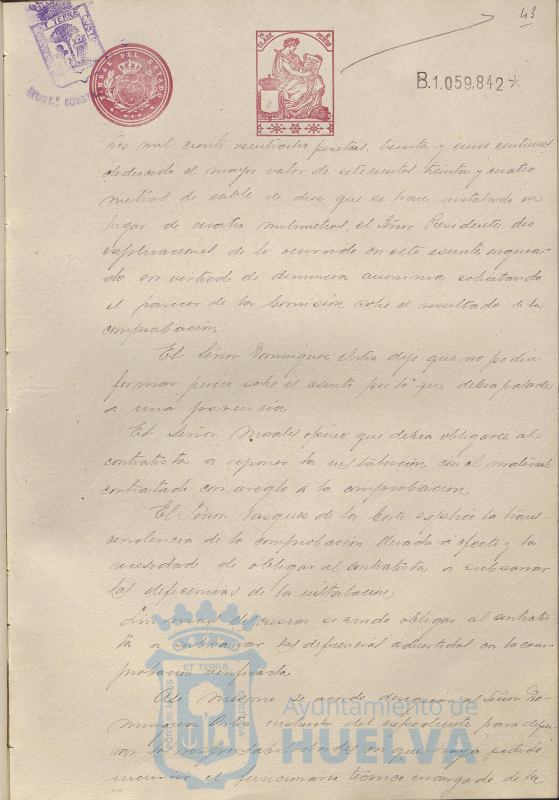 43
7ª CLASE
B.1.059.842*
mil ciento veintiocho pesetas, treinta y once centimos
deduciendo el mayor valor de setecientos treinta y cuatro
metros de cable de dos que se hace instalado en
lugar de cuatro milimetros, el Señor Presidente dio
explicaciones de lo ocurrido en este asunto
do en virtud de denuncia anonima solicitando
el parecer de la Comisión sobre el resultado de la
comprobación
El Señor Dominguez Ortiz dijo que no podia
formar juicio sobre el asunto por lo que debia pasarse
a una ponencia
El Señor Morales opinó que debia obligarse al
contratista a reponer la instalación con el material
contratado con arreglo a la comprobacion
El Señor Vazquez de la Corte explicó la trans
cendencia de la comprobacion llevada a efecto y la
necesidad de obligar al contratista a subsanar
las deficiencias de la instalación
Sin mas discusion se acordó obligar al contratis
ta a subsanar las deficiencias advertidas en la com
probacion verificada
Asi mismo se acordó designar al Señor Do
minguez Ortiz instructor del expediente para depu
rar las responsabilidades en que haya podido
incurrir el funcionario tecnico encargado de la
PORTUS MARIS
ET TERRÆ
CUSTODIA
Ayuntamiento de
HUELVA